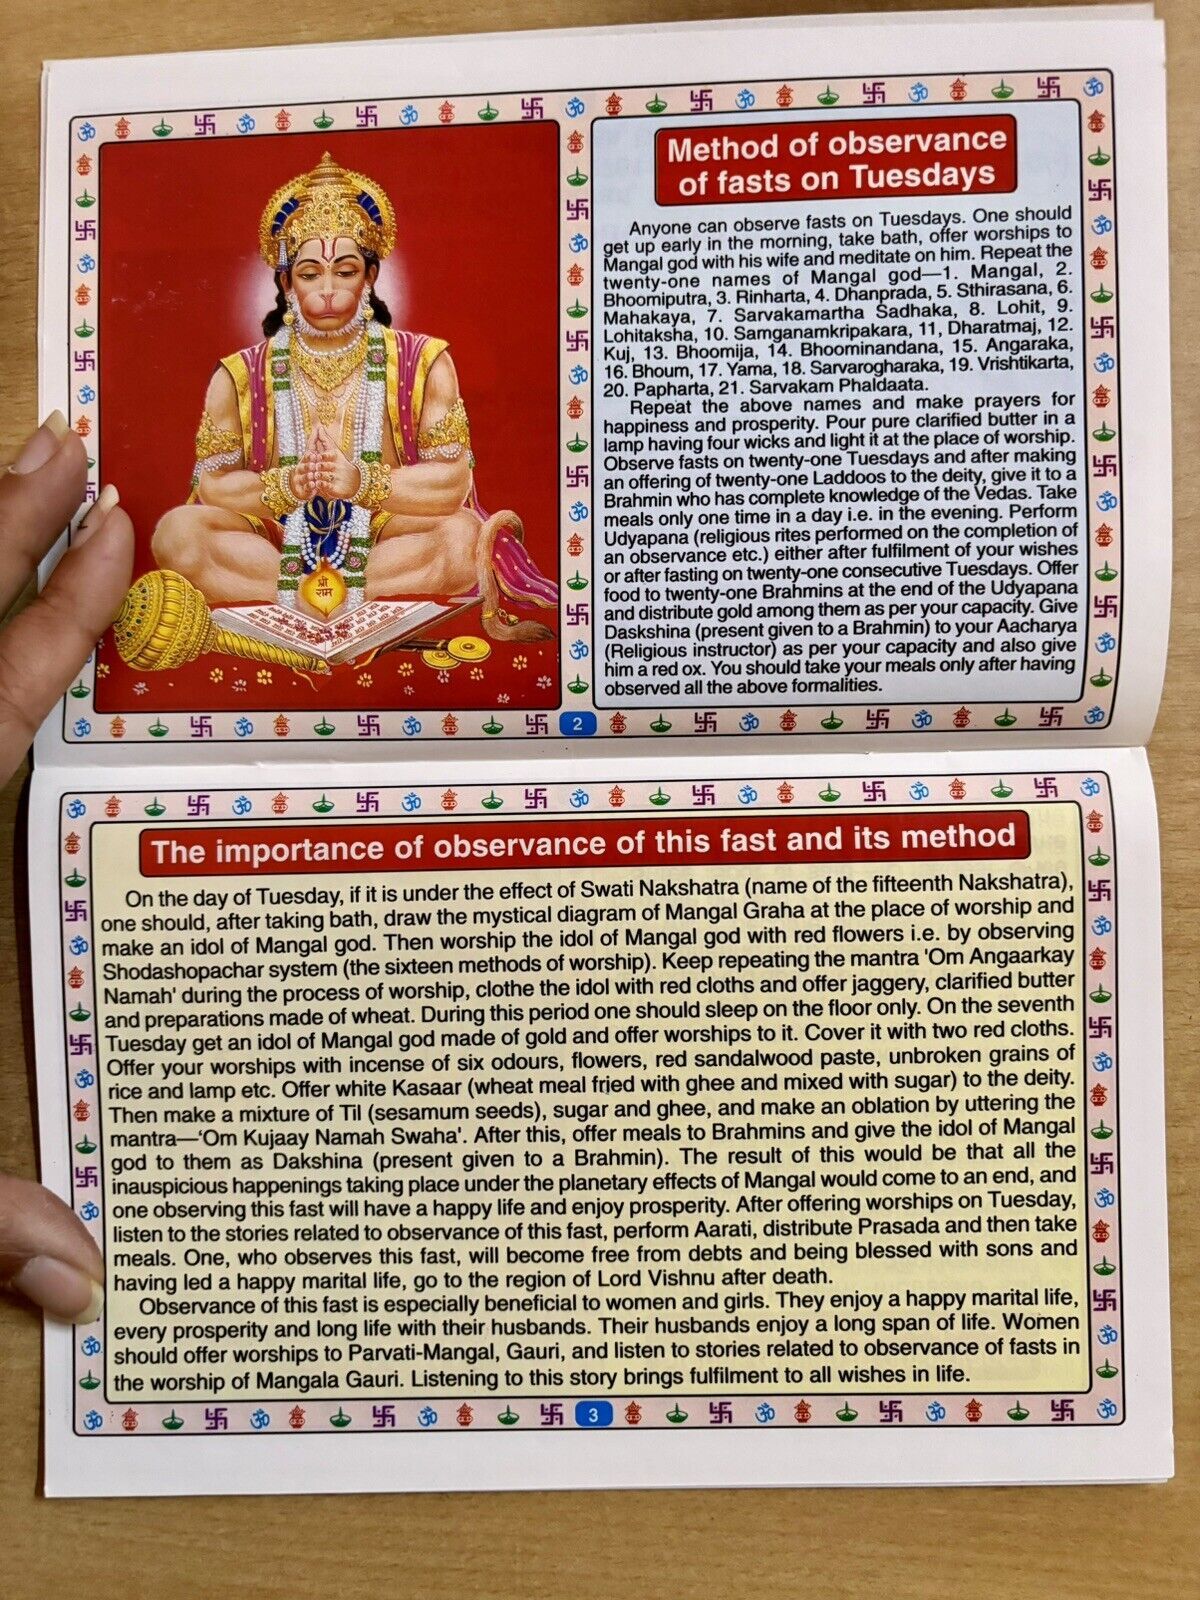 Method of observance
of fasts on Tuesdays
Anyone can observe fasts on Tuesdays. One should
get up early in the morning, take bath, offer worships to
Mangal god with his wife and meditate on him. Repeat the
twenty-one names of Mangal god—1. Mangal, 2.
Bhoomiputra, 3. Rinharta, 4. Dhanprada, 5. Sthirasana, 6.
Mahakaya, 7. Sarvakamartha Sadhaka, 8. Lohit, 9.
Lohitaksha, 10. Samganamkripakara, 11, Dharatmaj, 12.
Kuj, 13. Bhoomija, 14. Bhoominandana, 15. Angaraka,
16. Bhoum, 17. Yama, 18. Sarvarogharaka, 19. Vrishtikarta,
20. Papharta, 21. Sarvakam Phaldaata.
Repeat the above names and make prayers for
happiness and prosperity. Pour pure clarified butter in a
lamp having four wicks and light it at the place of worship.
Observe fasts on twenty-one Tuesdays and after making
an offering of twenty-one Laddoos to the deity, give it to a
Brahmin who has complete knowledge of the Vedas. Take
meals only one time in a day i.e. in the evening. Perform
Udyapana (religious rites performed on the completion of
an observance etc.) either after fulfilment of your wishes
or after fasting on twenty-one consecutive Tuesdays. Offer
food to twenty-one Brahmins at the end of the Udyapana
and distribute gold among them as per your capacity. Give
Daskshina (present given to a Brahmin) to your Aacharya
(Religious instructor) as per your capacity and also give
him a red ox. You should take your meals only after having
observed all the above formalities.
श्री
राम
2
The importance of observance of this fast and its method
On the day of Tuesday, if it is under the effect of Swati Nakshatra (name of the fifteenth Nakshatra),
one should, after taking bath, draw the mystical diagram of Mangal Graha at the place of worship and
make an idol of Mangal god. Then worship the idol of Mangal god with red flowers i.e. by observing
Shodashopachar system (the sixteen methods of worship). Keep repeating the mantra 'Om Angaarkay
Namah' during the process of worship, clothe the idol with red cloths and offer jaggery, clarified butter
and preparations made of wheat. During this period one should sleep on the floor only. On the seventh
Tuesday get an idol of Mangal god made of gold and offer worships to it. Cover it with two red cloths.
Offer your worships with incense of six odours, flowers, red sandalwood paste, unbroken grains of
rice and lamp etc. Offer white Kasaar (wheat meal fried with ghee and mixed with sugar) to the deity.
Then make a mixture of Til (sesamum seeds), sugar and ghee, and make an oblation by uttering the
mantra—‘Om Kujaay Namah Swaha'. After this, offer meals to Brahmins and give the idol of Mangal
god to them as Dakshina (present given to a Brahmin). The result of this would be that all the
inauspicious happenings taking place under the planetary effects of Mangal would come to an end, and
one observing this fast will have a happy life and enjoy prosperity. After offering worships on Tuesday,
listen to the stories related to observance of this fast, perform Aarati, distribute Prasada and then take
meals. One, who observes this fast, will become free from debts and being blessed with sons and
having led a happy marital life, go to the region of Lord Vishnu after death.
Observance of this fast is especially beneficial to women and girls. They enjoy a happy marital life,
every prosperity and long life with their husbands. Their husbands enjoy a long span of life. Women
should offer worships to Parvati-Mangal, Gauri, and listen to stories related to observance of fasts in
the worship of Mangala Gauri. Listening to this story brings fulfilment to all wishes in life.
3